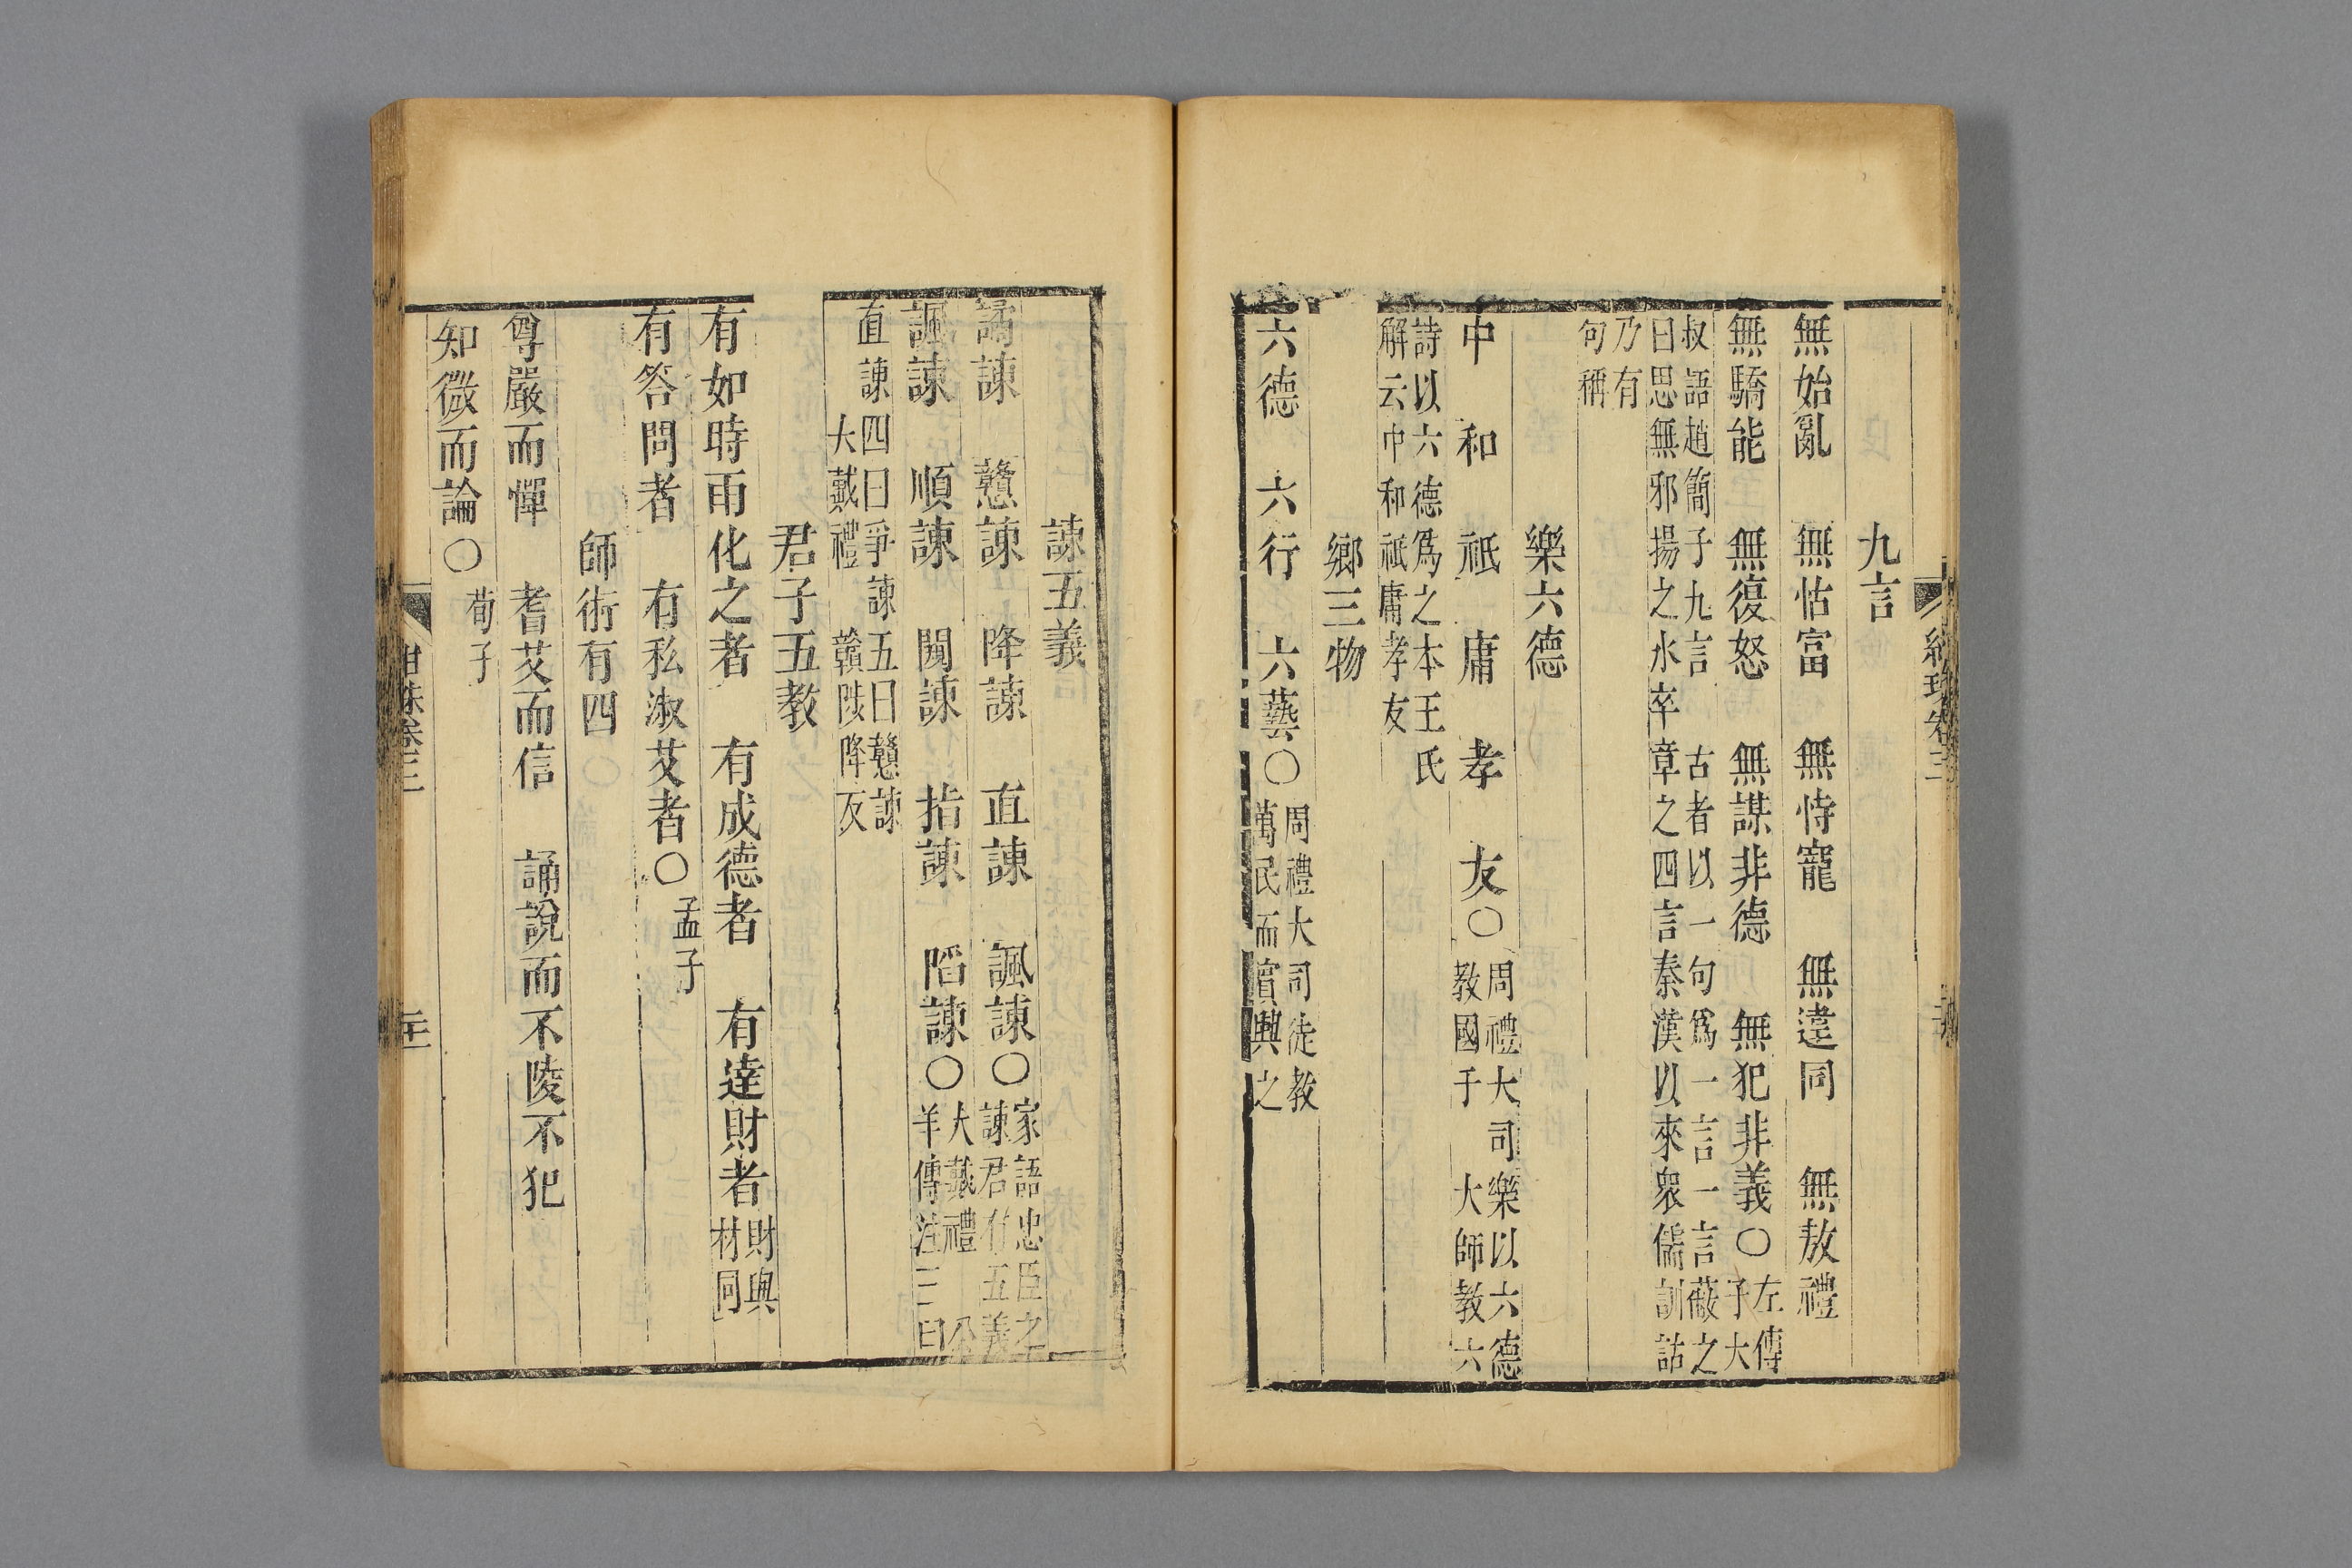 九言
無始亂　無怙富　無恃寵　無違同　無敖禮
無驕能　無復怒　無謀非德　無犯非義○左傳子大
叔語趙簡子九言　古者以一句爲一言一言蔽之
曰思無邪揚之水卒章之四言秦漢以來衆儒訓詁
乃有
句稱
樂六德
中　和　祗　庸　孝　友○周禮大司樂以六德教國子　大師教六
詩以六德爲之本王氏
解云中和祗庸孝友
鄉三物
六德　六行　六藝○周禮大司徒教萬民而賔興之
諫五義
譎諫　戇諫　降諫　直諫　諷諫○家語忠臣之諫君有五義
諷諫　順諫　闚諫　指諫　陷諫○大戴禮　公羊傳注三曰
直諫四曰爭諫五曰戇諫
大戴禮　贛陟降反
君子五教
有如時雨化之者　有成德者　有達財者財與材同
有答問者　有私淑艾者○孟子
師術有四
尊嚴而憚　耆艾而信　誦說而不陵不犯
知微而論○荀子
卷三